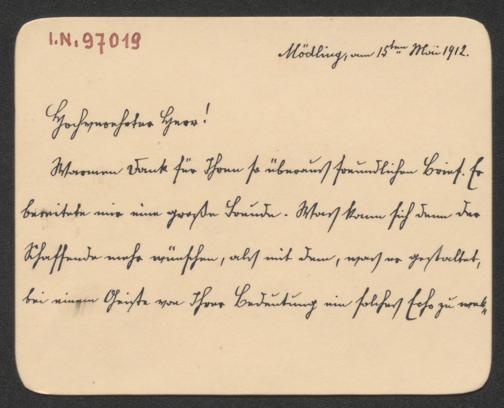 I.N. 97019
Mödling, am 15ten Mai 1912.
Hochverehrter Herr!
Warmen Dank für Ihren so überaus freundlichen Brief. Er
bereitete mir eine große Freude. Was kann sich denn der
Schaffende mehr wünschen, als mit dem, was er gestaltet,
bei einem Geiste von Ihrer Bedeutung ein solches Echo zu wek-